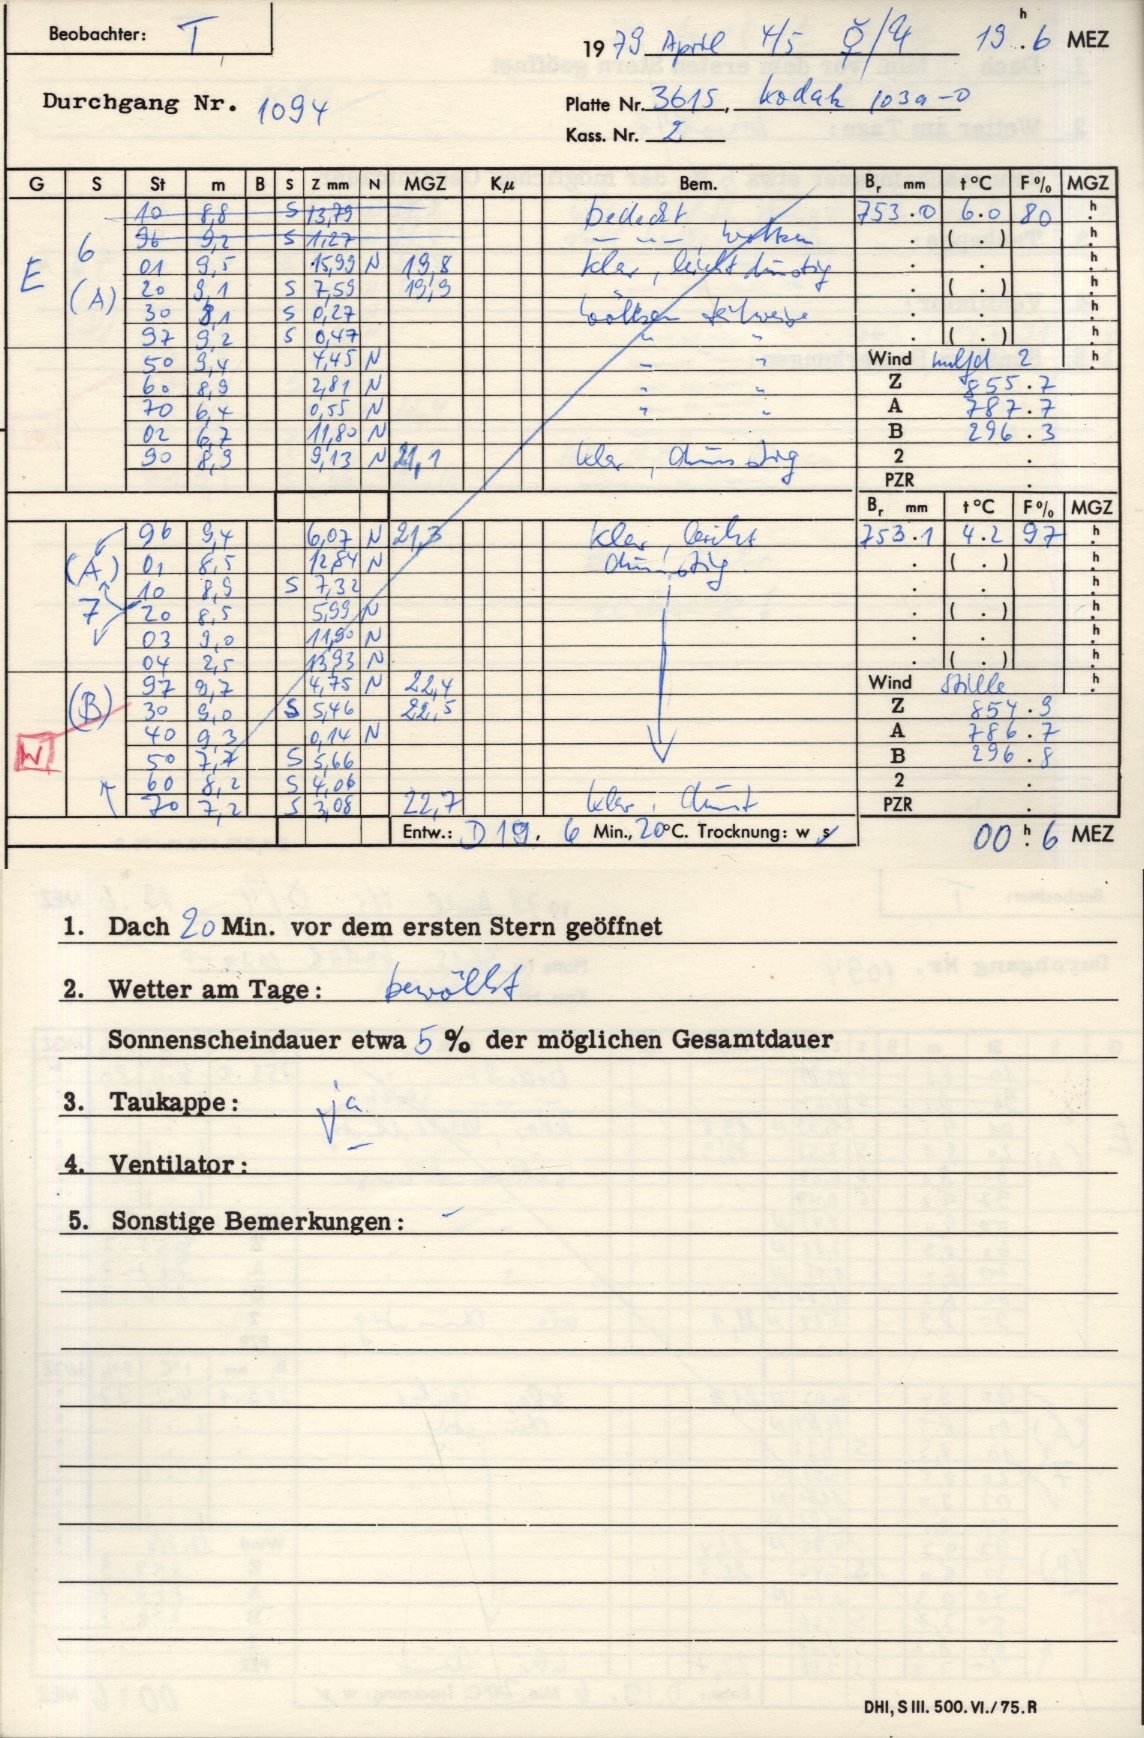 Beobachter: T
1979 April 4/5 ☿/♃ 19 h . 6 MEZ
Durchgang Nr. 1094
Platte Nr. 3615, Kodak 103a-O
Kass. Nr. 2
G S St m B S Z mm N MGZ Kμ Bem. Br mm t °C F % MGZ
10 8,8 S 13,79 bedeckt 753.0 6.0 80 h
96 9,2 S 1,27 — " —, Wolken . ( . ) h
E 6 01 9,5 15,99 N 19,8 klar, leicht dunstig . . h
(A) 20 9,1 S 7,59 19,9 . ( . ) h
30 8,1 S 0,27 Wolken teilweise . . h
97 9,2 S 0,47 " " . ( . ) h
50 9,4 4,45 N " " Wind 2 h
60 8,9 2,81 N " " Z 855.7
70 6,4 0,55 N " " A 787.7
02 6,7 11,80 N B 296.3
90 8,9 9,13 N 21,1 klar, dunstig 2 .
PZR .
Br mm t °C F % MGZ
96 9,4 6,07 N 21,3 klar, leicht 753.1 4.2 97 h
(A) 01 8,5 12,84 N dunstig . ( . ) h
10 8,9 S 7,32 . . h
7 20 8,5 5,99 N . ( . ) h
03 9,0 11,90 N . . h
04 2,5 13,93 N . ( . ) h
97 9,7 4,75 N 22,4 Wind Stille h
(B) 30 9,0 S 5,46 22,5 Z 854.9
40 9,3 0,14 N A 786.7
W 50 7,7 S 5,66 B 296.8
60 8,2 S 4,06 2 .
70 7,2 S 3,08 22,7 klar, Dunst PZR .
Entw.: D 19. 6 Min., 20°C. Trocknung: w s 00 h . 6 MEZ
1. Dach 20 Min. vor dem ersten Stern geöffnet
2. Wetter am Tage: bewölkt
Sonnenscheindauer etwa 5 % der möglichen Gesamtdauer
3. Taukappe: ja
4. Ventilator:
5. Sonstige Bemerkungen: –
DHI, S III. 500. VI./75. R